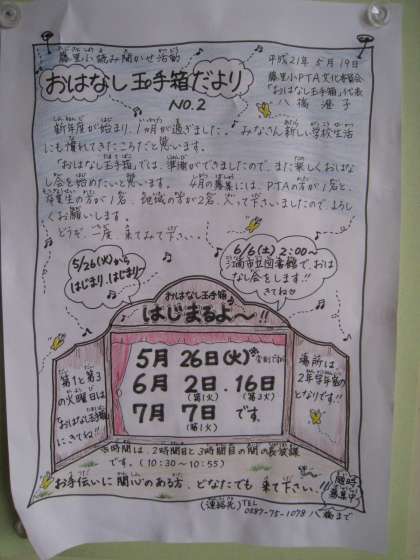 藤里小読み聞かせ活動
おはなし玉手箱だより
NO.2
平成21年 5月19日
藤里小PTA文化委員会
「おはなし玉手箱」代表
八橋 澄子
新年度が始まり、1ヶ月が過ぎました。みなさん新しい学校生活
にも慣れてきたころだと思います。
「おはなし玉手箱」では、準備ができましたので、また楽しくおはな
し会を始めたいと思います。 4月の募集には、PTAの方が1名と、
卒業生の方が1名、地域の方が2名、入って下さいましたのでよろし
くお願いします。
どうぞ、一度、来てみて下さい。
5/26(火)から
はじまり、はじまり〜
6/6(土) 2:00〜
江南市立図書館で、おは
なし会をします!!
きてね♡
おはなし玉手箱
はじまるよ〜!!
5月 26日(火)
6月 2日・16日
(第1火) (第3火)
7月 7日 です。
(第1火)
第1と第3
の火曜日は
「おはなし玉手箱」
にきてね!!
場所は
2年学年室の
となりです!!
時間は、2時間目と3時間目の間の長放課
です。(10:30〜10:55)
お手伝いに関心のある方、どなたでも来て下さい。!!
随時
募集中
(連絡先) TEL
0587-75-1078 八橋まで